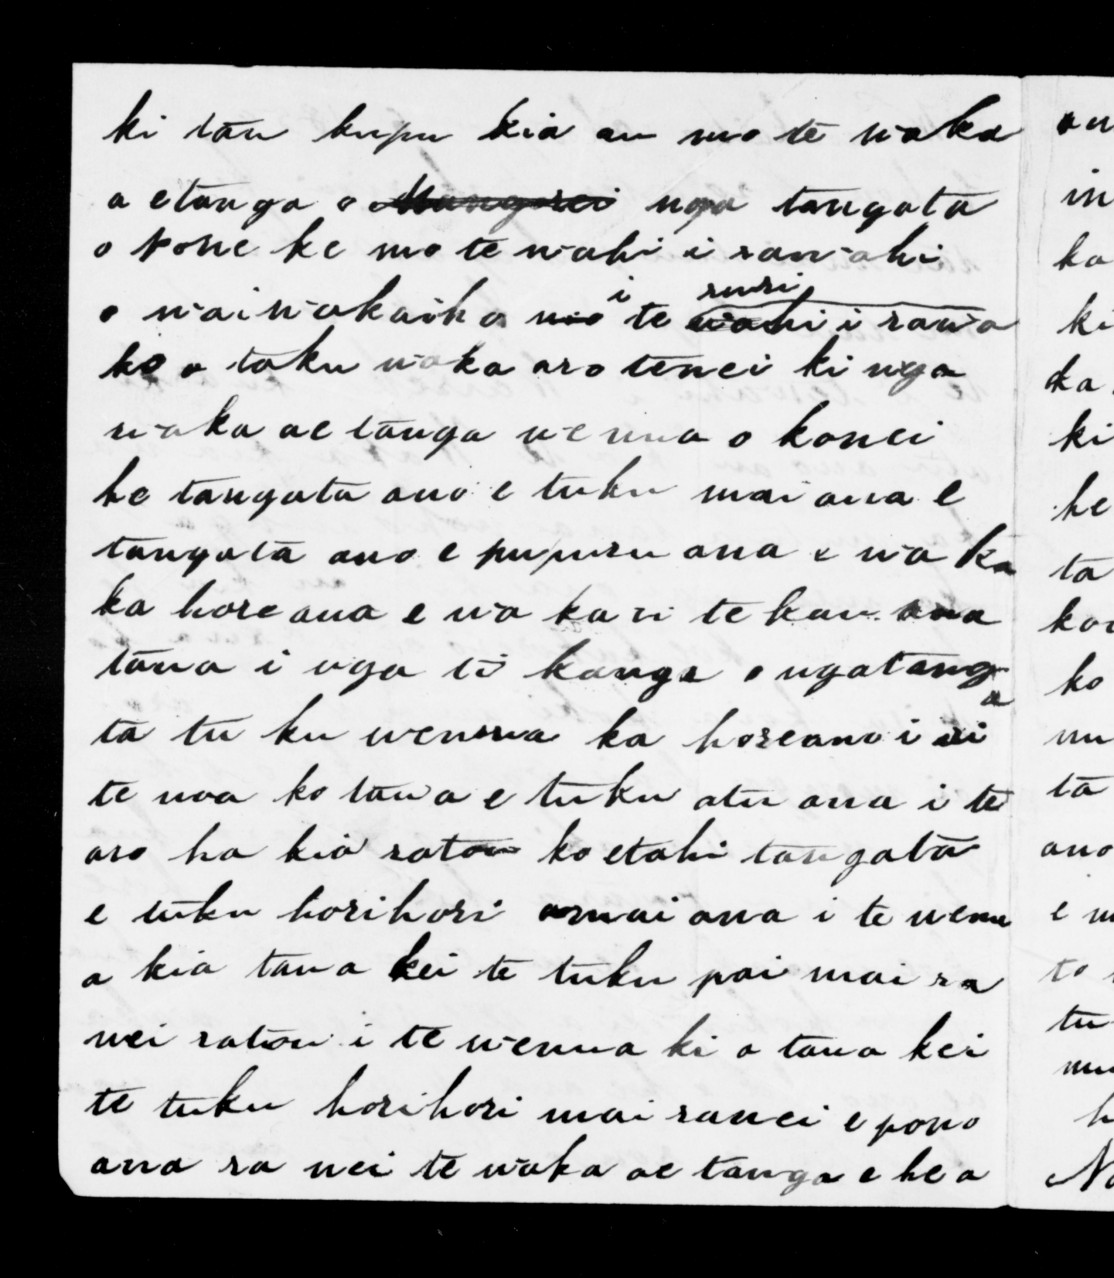 ki tau kupu kia au mo te waka
a etanga o Mangarei nga tangata
o Pone ke mo te wahi i rawahi
o waiwakaiho mo i te wahi ruri i rawa
ho o taku waka aro tenei ki nga
waka ae tanga wenua o konei
he tangata ano e tuku mai ana e
tangata ano e pupuru ana e wa ka
ka hore ana e wa ka ri te kau ana
taua i nga ti kanga o ngatang
a
ta tu ku wenua ka horeano i ri
te noa ko taua e tuku atu ana i te
aro ha kia ratou ko etahi tangata
e tuku horihori mai ana i te wenu
a kia taua kei te tuku pai mai ra
nei ratou i te wenua ki a taua kei
te tuku horihori mai ranei e pono
ana ra nei te waka ae tanga e he a
an
in
ka
ki
ka
ki
he
ta
ko
mu
ta
ano
e
to
tu
h